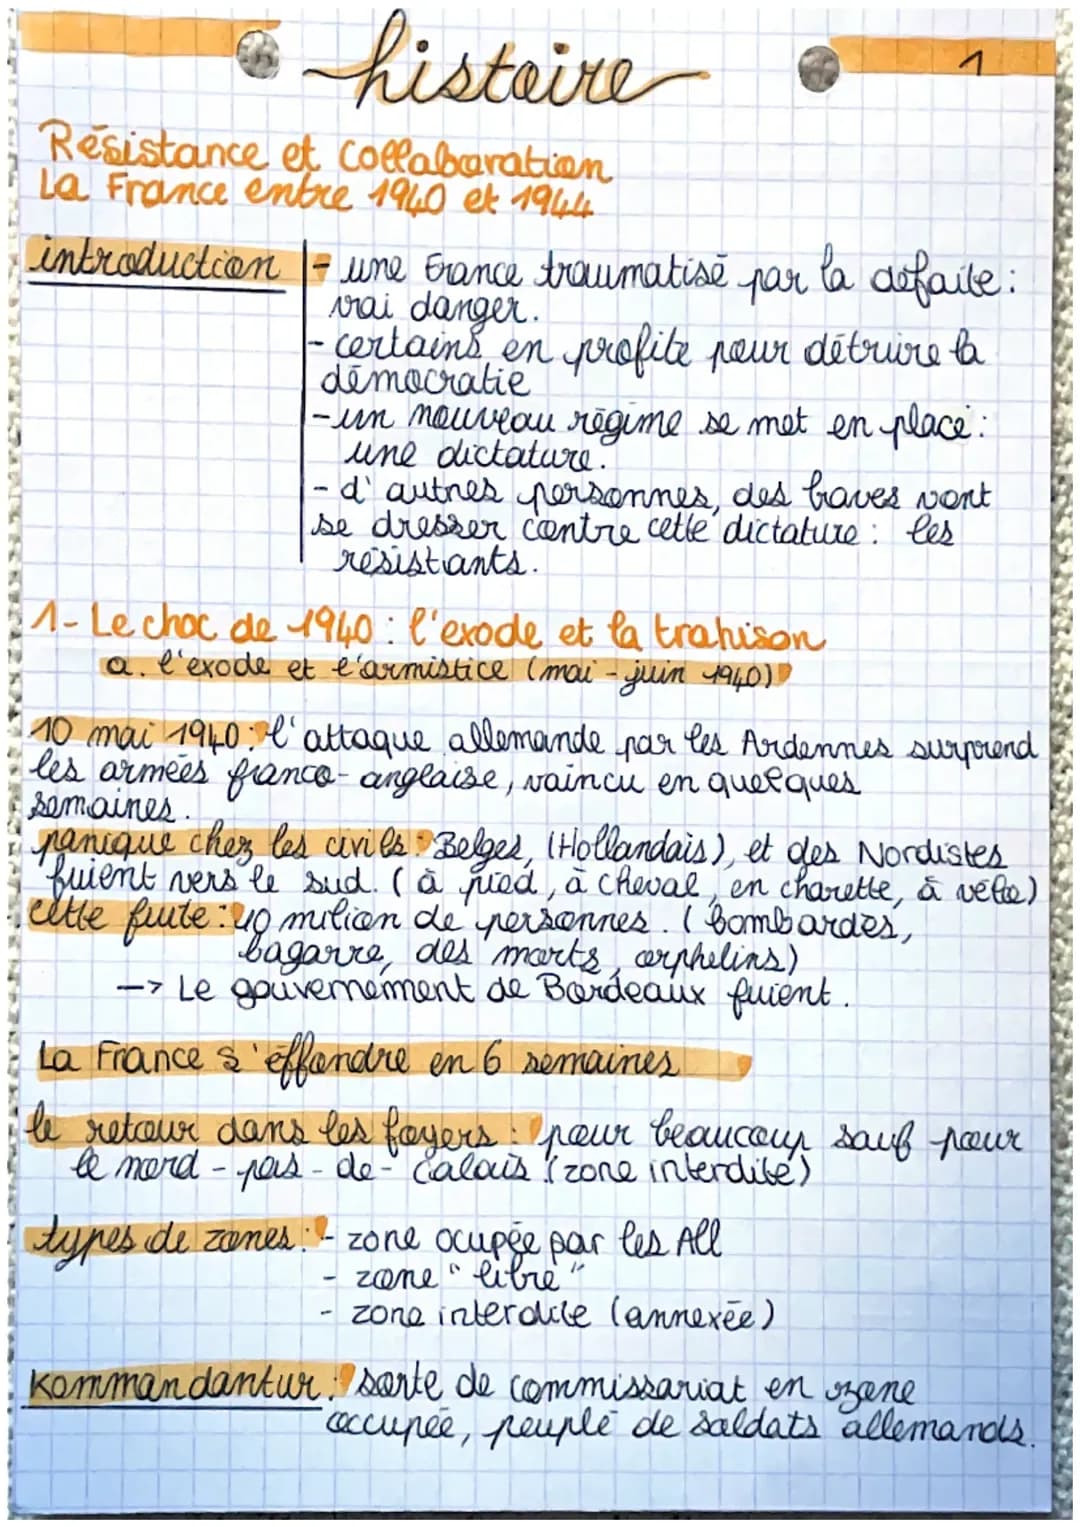 histoire
1
Résistance et Collaboration
La France entre 1940 et 1944
introduction
- une France traumatisé par la défaite :
vrai danger.
- certains en profite pour détruire la
démocratie
- un nouveau régime se met en place :
une dictature.
- d'autres personnes, des braves vont
se dresser contre cette dictature : les
résistants.
1- Le choc de 1940 : l'exode et la trahison
a. l'exode et l'armistice (mai - juin 1940)
10 mai 1940 : l'attaque allemande par les Ardennes surprend
les armées franco-anglaise, vaincu en quelques
semaines.
panique chez les civils : Belges, (Hollandais), et des Nordistes
fuient vers le sud. (à pied, à cheval, en charette, à vélo)
cette fuite : 10 milion de personnes. (bombardés,
bagarre, des morts, orphelins)
--> Le gouvernement de Bordeaux fuient.
La France s'effondre en 6 semaines
le retour dans les foyers : pour beaucoup sauf pour
le nord - pas - de - Calais (zone interdite)
types de zones : - zone ocupée par les All
- zone "libre"
- zone interdite (annexée)
Kommandantur : sorte de commissariat en zone
occupée, peuplé de soldats allemands.